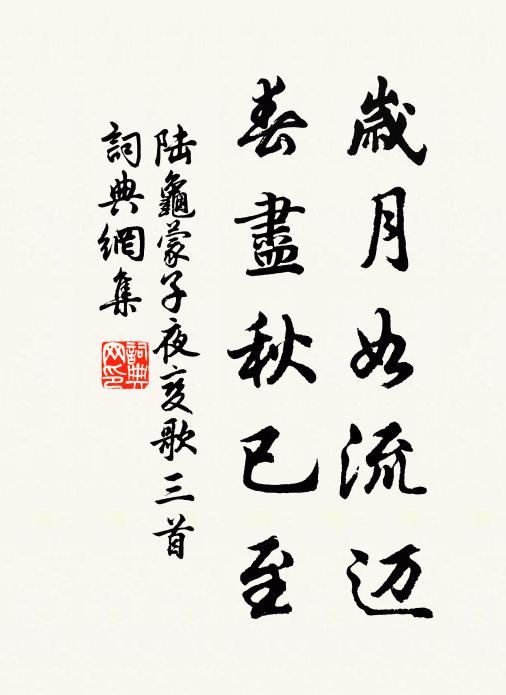 歲月如流迈
春盡秋已至
陆龜蒙子夜变歌三首
詞典網集
詞典网印